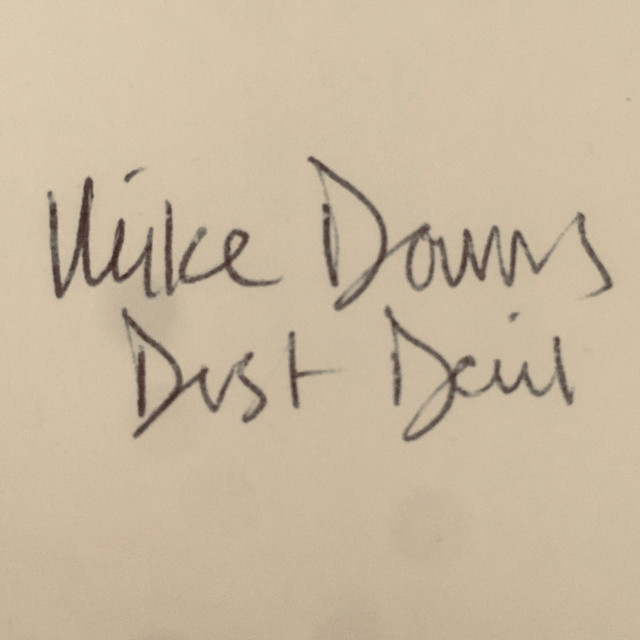 Mike Downs
Dust Devil